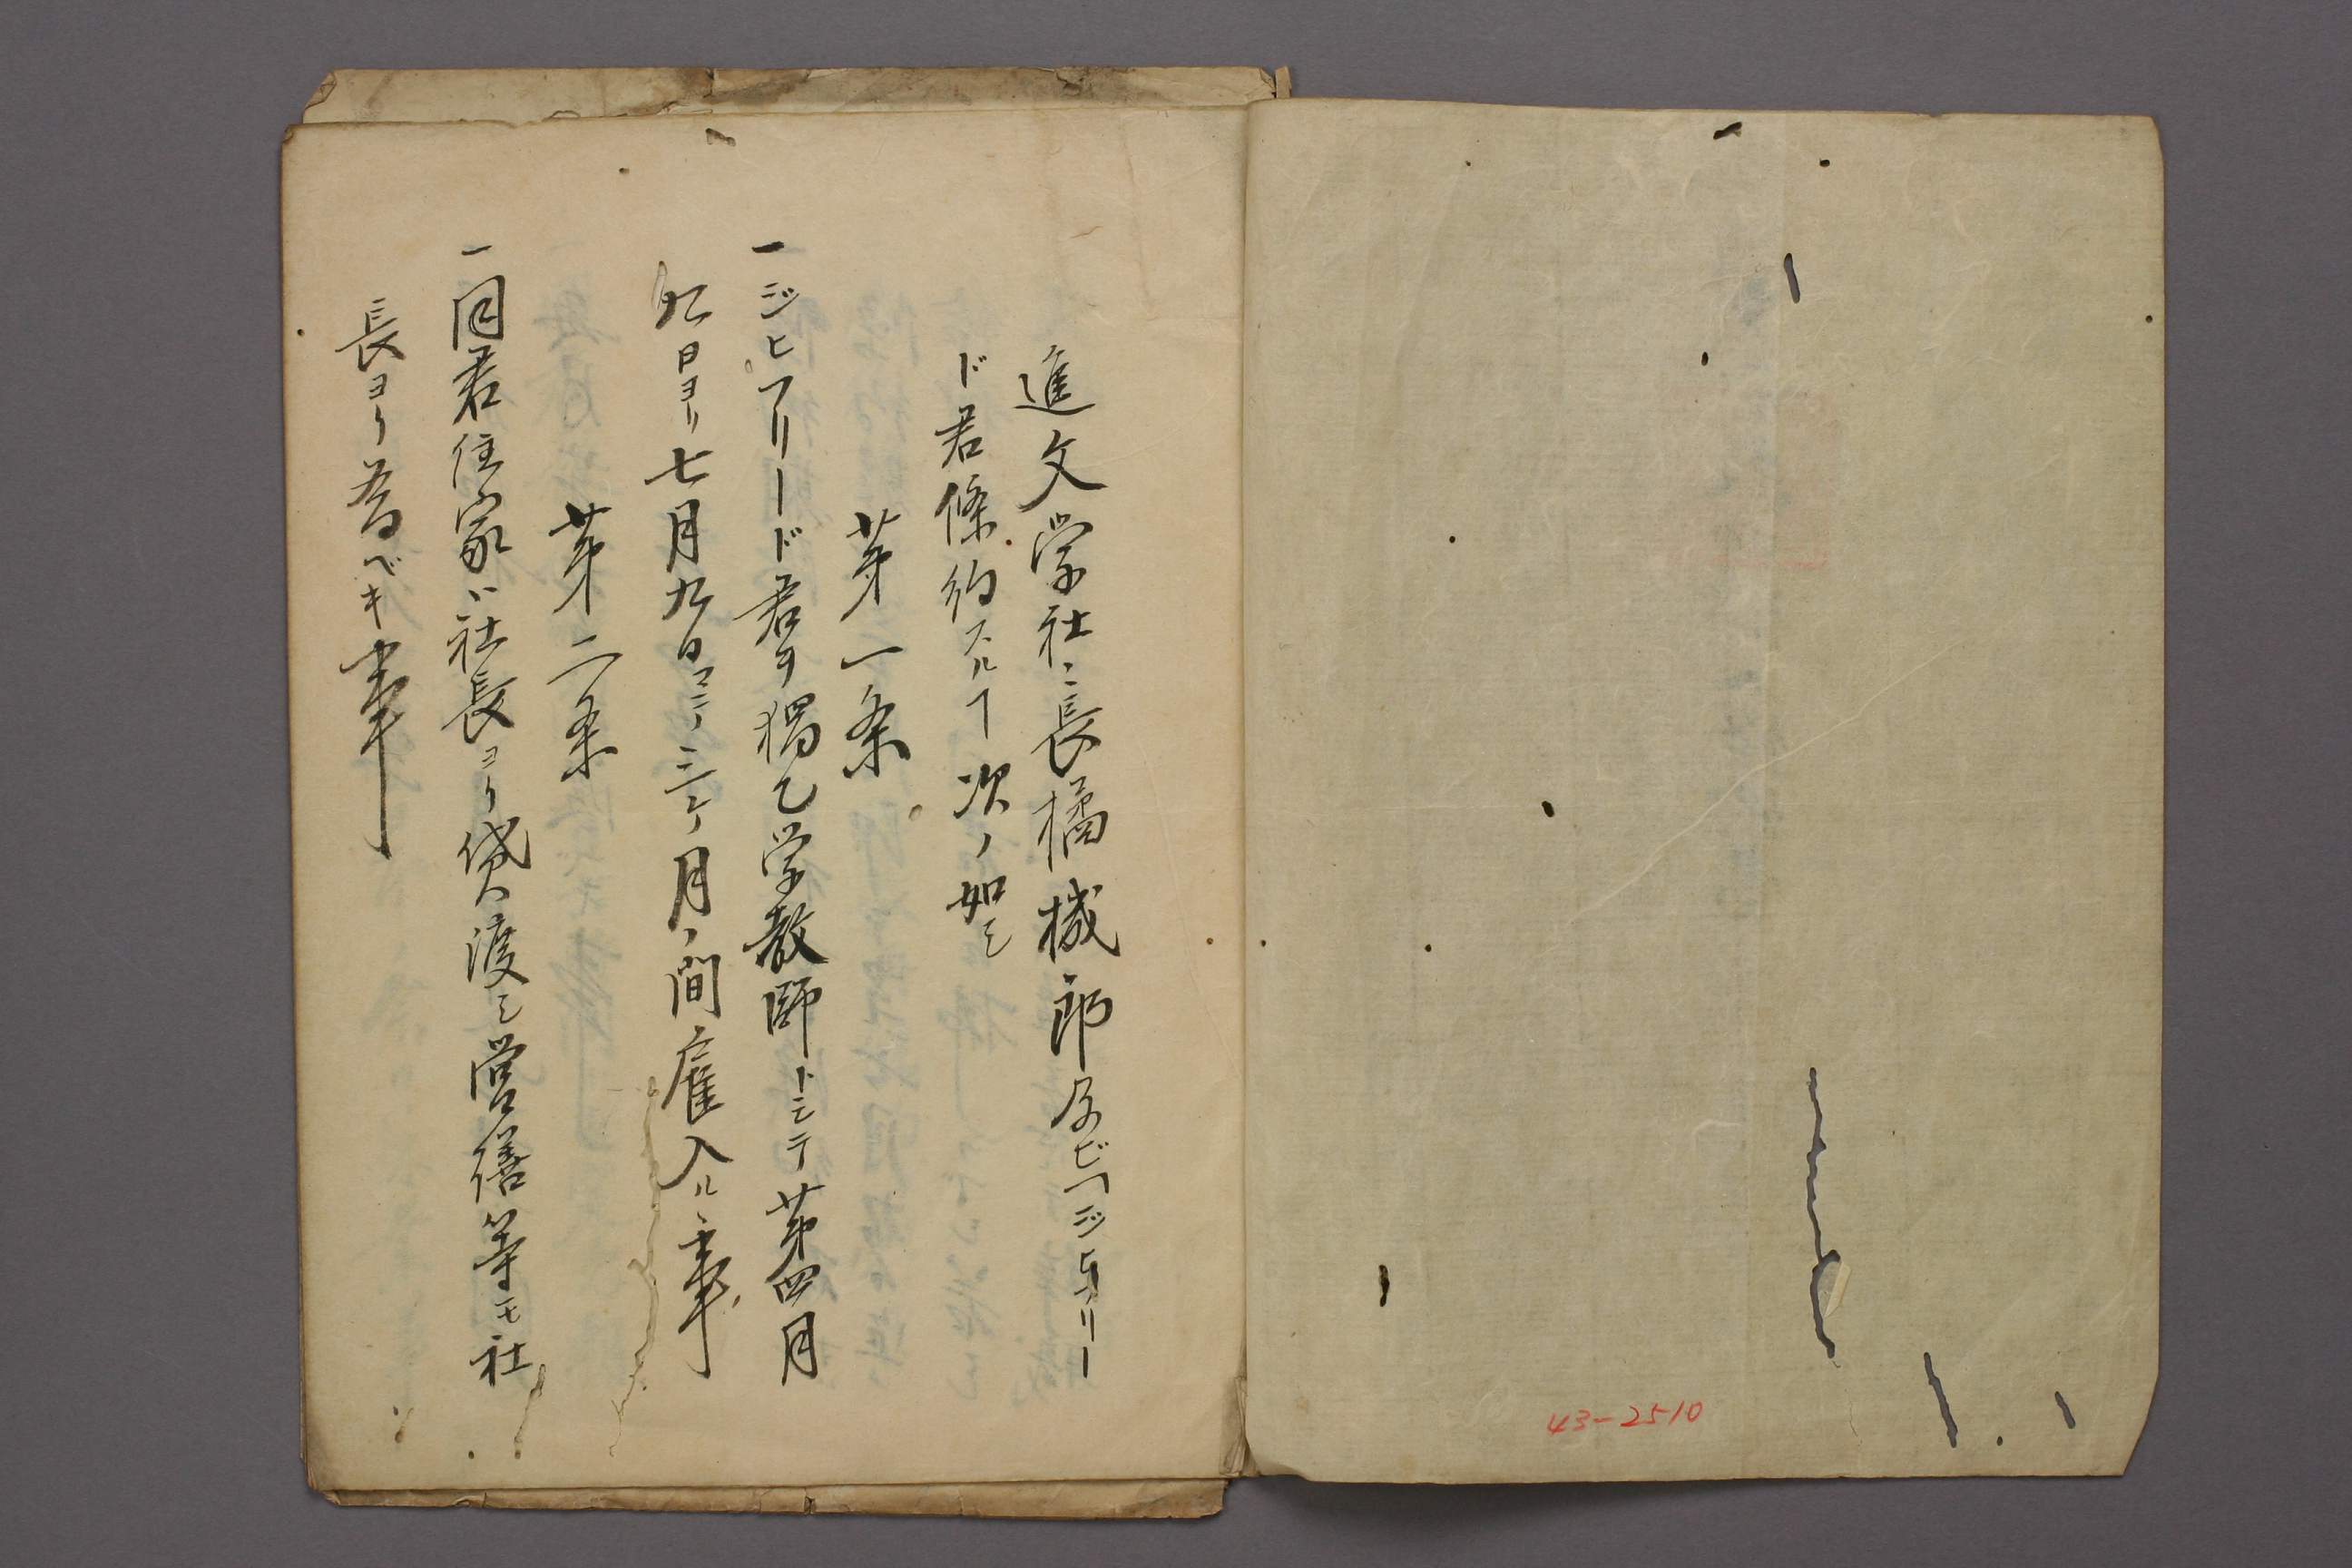 進文学社々長橘機郎及ビフヨジヒフリー
ド君條約スルヿ次ノ如シ
第一条
一ジヒフリード君ヲ獨乙学教師トシテ第四月
九日ヨリ七月九日マテ三ケ月ノ間雇入ルヽ事
第二条
一同君住家ハ社長ヨリ貸渡シ営繕等モ社
長ヨリ為ベキ事
43-2510